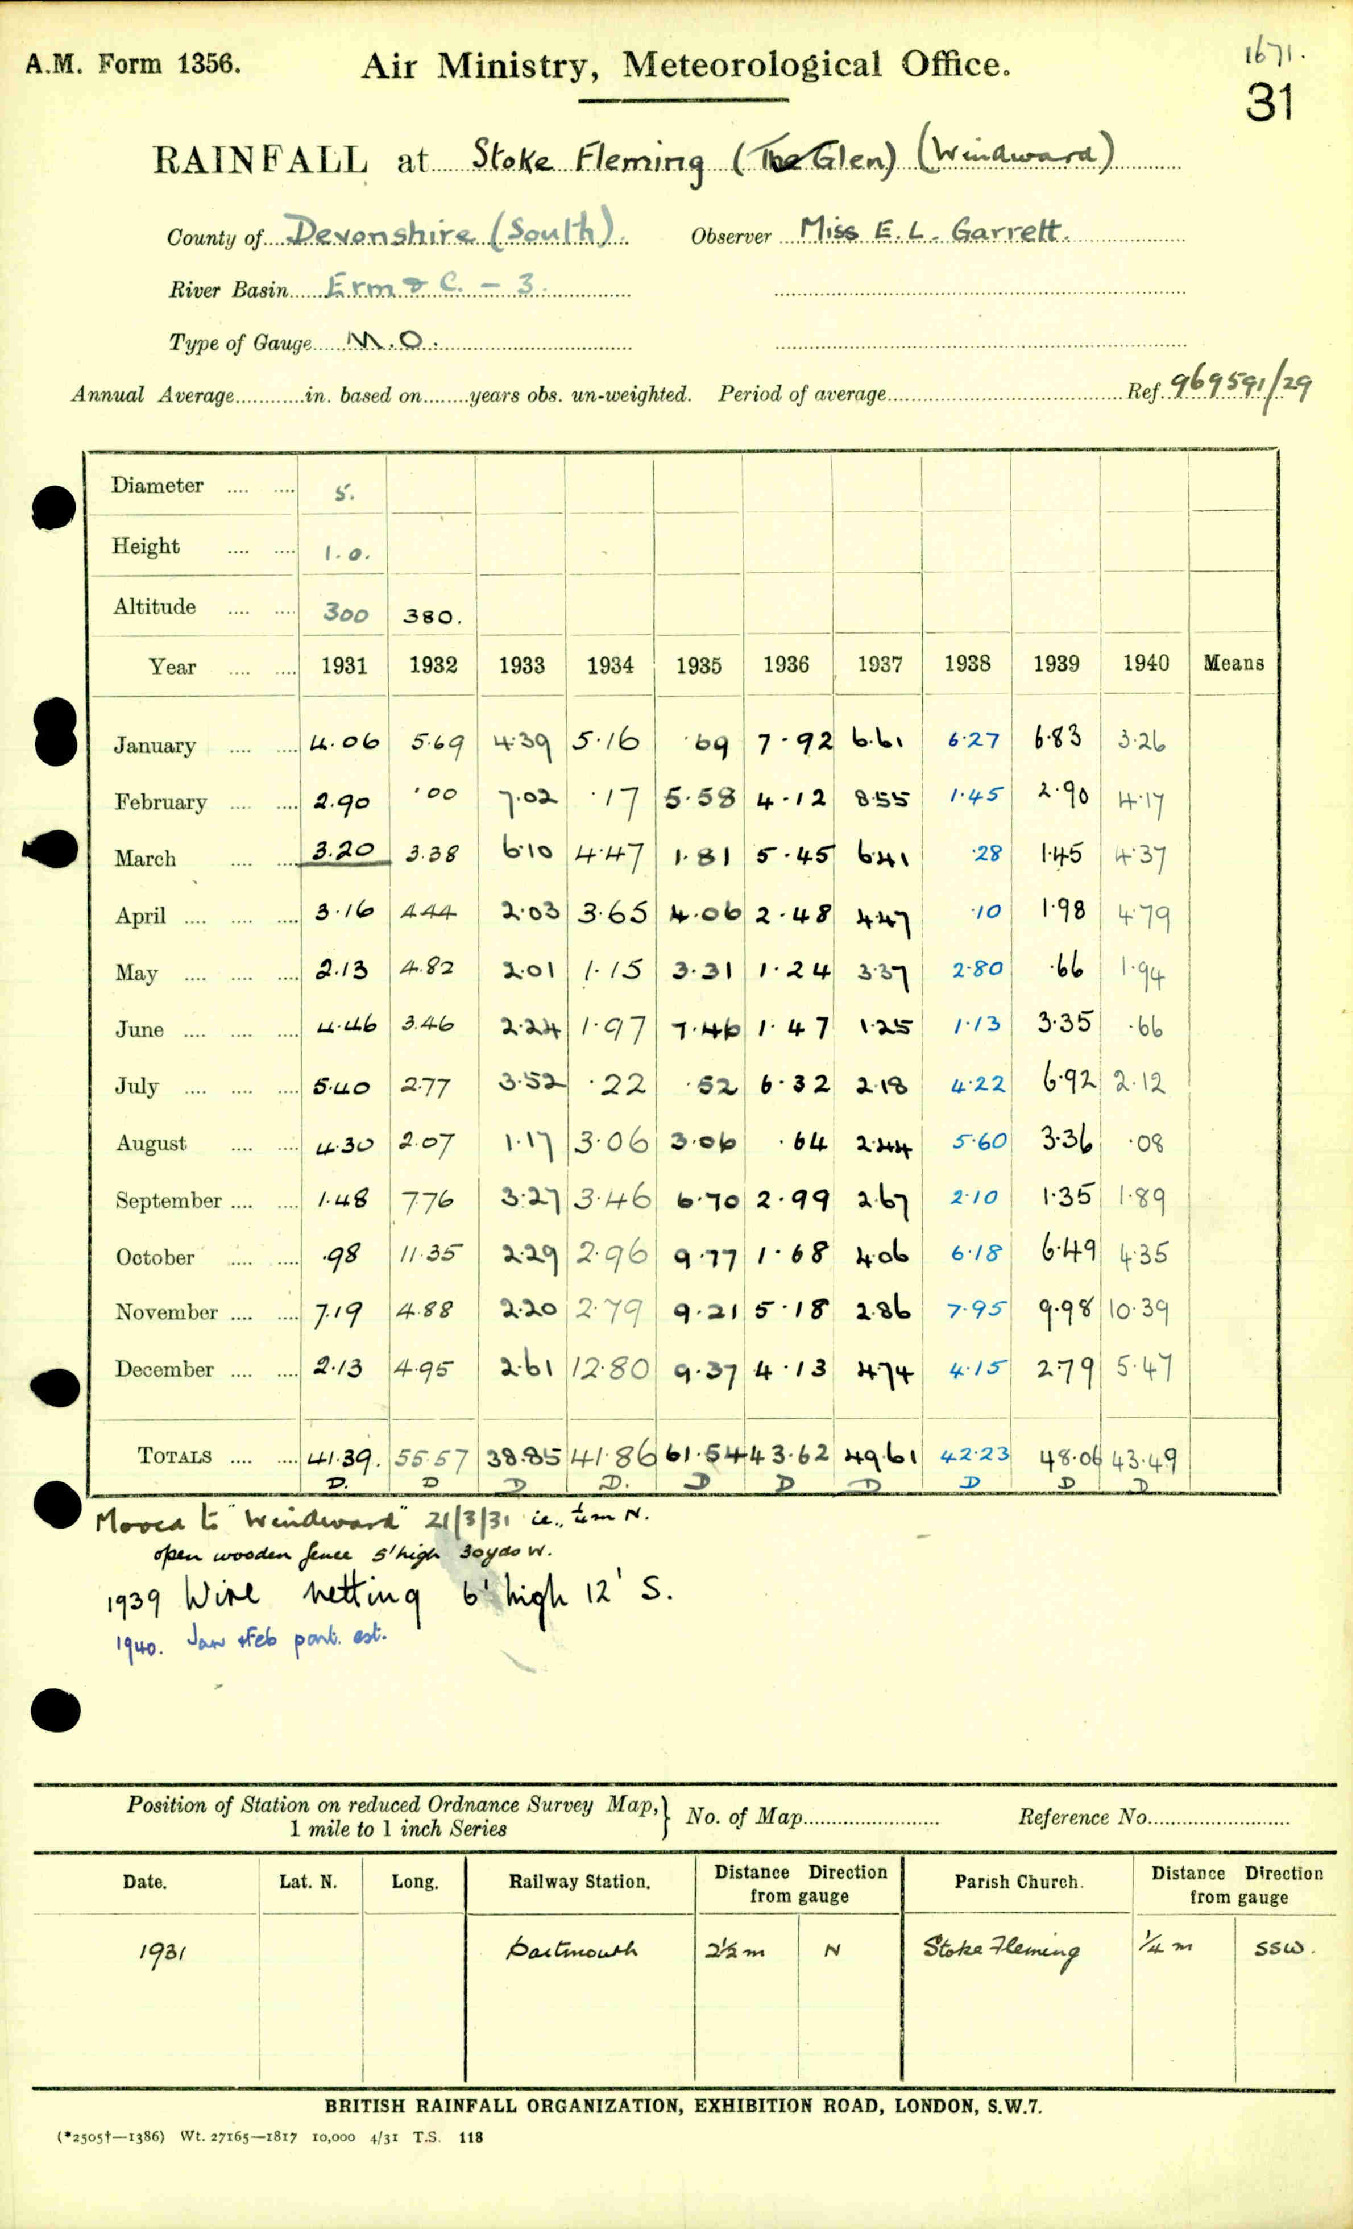 A.M. Form 1356.
Air Ministry, Meteorological Office.
1671.
31
RAINFALL at Stoke Fleming (The Glen) (Windward)
County of Devonshire (South). Observer Miss E. L. Garrett.
River Basin Erm & C. - 3.
Type of Gauge M.O.
Annual Average............in. based on........years obs. un-weighted. Period of average............ Ref. 969591/29
Diameter .... .... 5.
Height .... .... 1.0.
Altitude .... .... 300 380.
Year .... .... 1931 1932 1933 1934 1935 1936 1937 1938 1939 1940 Means
January .... .... 4.06 5.69 4.39 5.16 .69 7.92 6.61 6.27 6.83 3.26
February .... .... 2.90 .00 7.02 .17 5.58 4.12 8.55 1.45 2.90 4.17
March .... .... 3.20 3.38 6.10 4.47 1.81 5.45 6.41 .28 1.45 4.37
April .... .... .... 3.16 4.44 2.03 3.65 4.06 2.48 4.47 .10 1.98 4.79
May .... .... .... 2.13 4.82 2.01 1.15 3.31 1.24 3.37 2.80 .66 1.94
June .... .... .... 4.46 3.46 2.24 1.97 7.46 1.47 1.25 1.13 3.35 .66
July .... .... .... 5.40 2.77 3.52 .22 .52 6.32 2.18 4.22 6.92 2.12
August .... .... 4.30 2.07 1.17 3.06 3.06 .64 2.44 5.60 3.36 .08
September .... .... 1.48 7.76 3.27 3.46 6.70 2.99 2.67 2.10 1.35 1.89
October .... .... .98 11.35 2.29 2.96 9.77 1.68 4.06 6.18 6.49 4.35
November .... .... 7.19 4.88 2.20 2.79 9.21 5.18 2.86 7.95 9.98 10.39
December .... .... 2.13 4.95 2.61 12.80 9.37 4.13 4.74 4.15 2.79 5.47
TOTALS .... .... 41.39. 55.57 38.85 41.86 61.54 43.62 49.61 42.23 48.06 43.49
D. D D D. D D D D D D
Moved to "Windward" 21/3/31 ie., ¼m N.
open wooden fence 5' high 30yds W.
1939 Wire netting 6' high 12' S.
1940. Jan & Feb part. est.
Position of Station on reduced Ordnance Survey Map, } No. of Map............ Reference No............
1 mile to 1 inch Series
Date. Lat. N. Long. Railway Station. Distance Direction from gauge Parish Church. Distance Direction from gauge
1931 Dartmouth 2½ m N Stoke Fleming ¼ m SSW.
BRITISH RAINFALL ORGANIZATION, EXHIBITION ROAD, LONDON, S.W.7.
(*2505†—1386) Wt. 27165—1817 10,000 4/31 T.S. 118